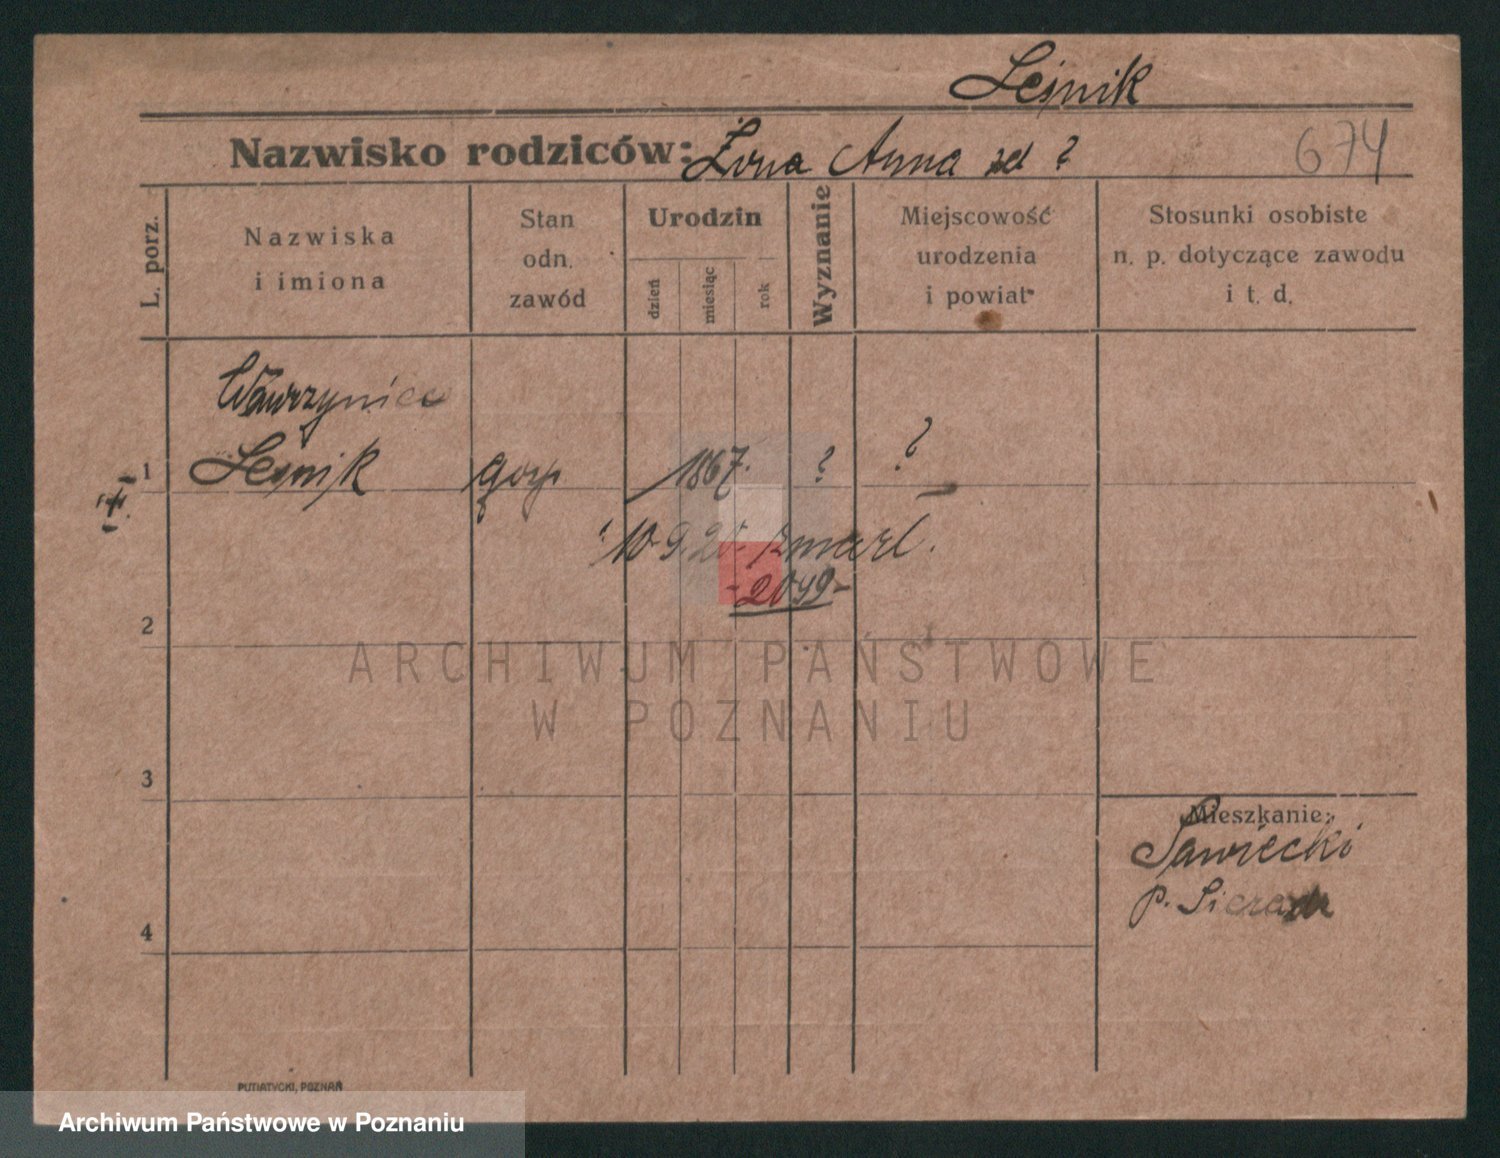 Leśnik
Nazwisko rodziców: Żona Anna zd ?
674
L. porz.
Nazwiska
i imiona
Stan
odn.
zawód
Urodzin
dzień
miesiąc
rok
Wyznanie
Miejscowość
urodzenia
i powiat
Stosunki osobiste
n. p. dotyczące zawodu
i t. d.
Wawrzyniec
1 Leśnik 1867. ? ?
zmarł.
-2099-
2
ARCHIWUM PAŃSTWOWE
W POZNANIU
3
Mieszkanie:
Sawiecki
p. Sieradz
4
PUTIATYCKI, POZNAŃ
Archiwum Państwowe w Poznaniu